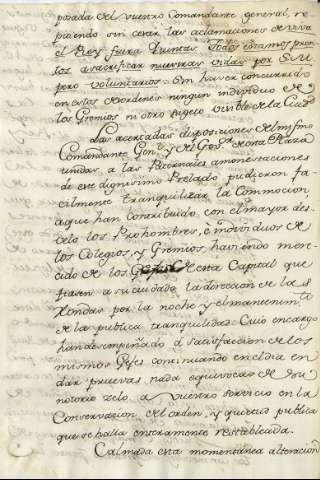 posada del vuestro Comandante general, re
pitiendo sin cesar las aclamaciones de viva
el Rey fuera Quintas. Todos estamos pron
tos a sacrificar nuestras vidas por S.M.
pero voluntarios. Sin haver concurrido
en estos desordenes ningun individuo de
los Gremios ni otro sugeto visible de la Ciud.
Las acertadas disposiciones del mismo
Comandante Gen.l y del Gov.r de esta Plaza
unidas, a las Paternales amonestaciones
de este dignisimo Prelado pudieron fa
cilmente tranquilizar la Commocion
a que han contribuido con el mayor des
velo los Prohombres, e individuos de
los Colegios, y Gremios, haviendo mere
cido de los Gefes de esta Capital que
fiasen a su cuidado la direccion de las
Rondas por la noche y el mantenim.to
de la publica tranquilidad. Cuio encargo
han desempeñado a satisfaccion de los
mismos Gefes continuando en el dia en
dar pruevas nada equivocas de su
notorio zelo a vuestro servicio en la
Conservacion del orden, y quietud publica
que se halla enteramente restablecida.
Calmada esta momentanea alteracion